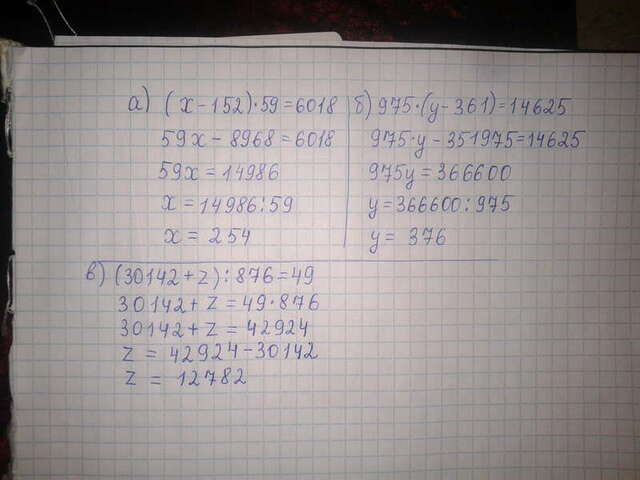 а) (x-152)·59=6018
59x-8968=6018
59x=14986
x=14986:59
x=254
б) 975·(y-361)=14625
975·y-351975=14625
975y=366600
y=366600:975
y=376
в) (30142+z):876=49
30142+z=49·876
30142+z=42924
z=42924-30142
z=12782